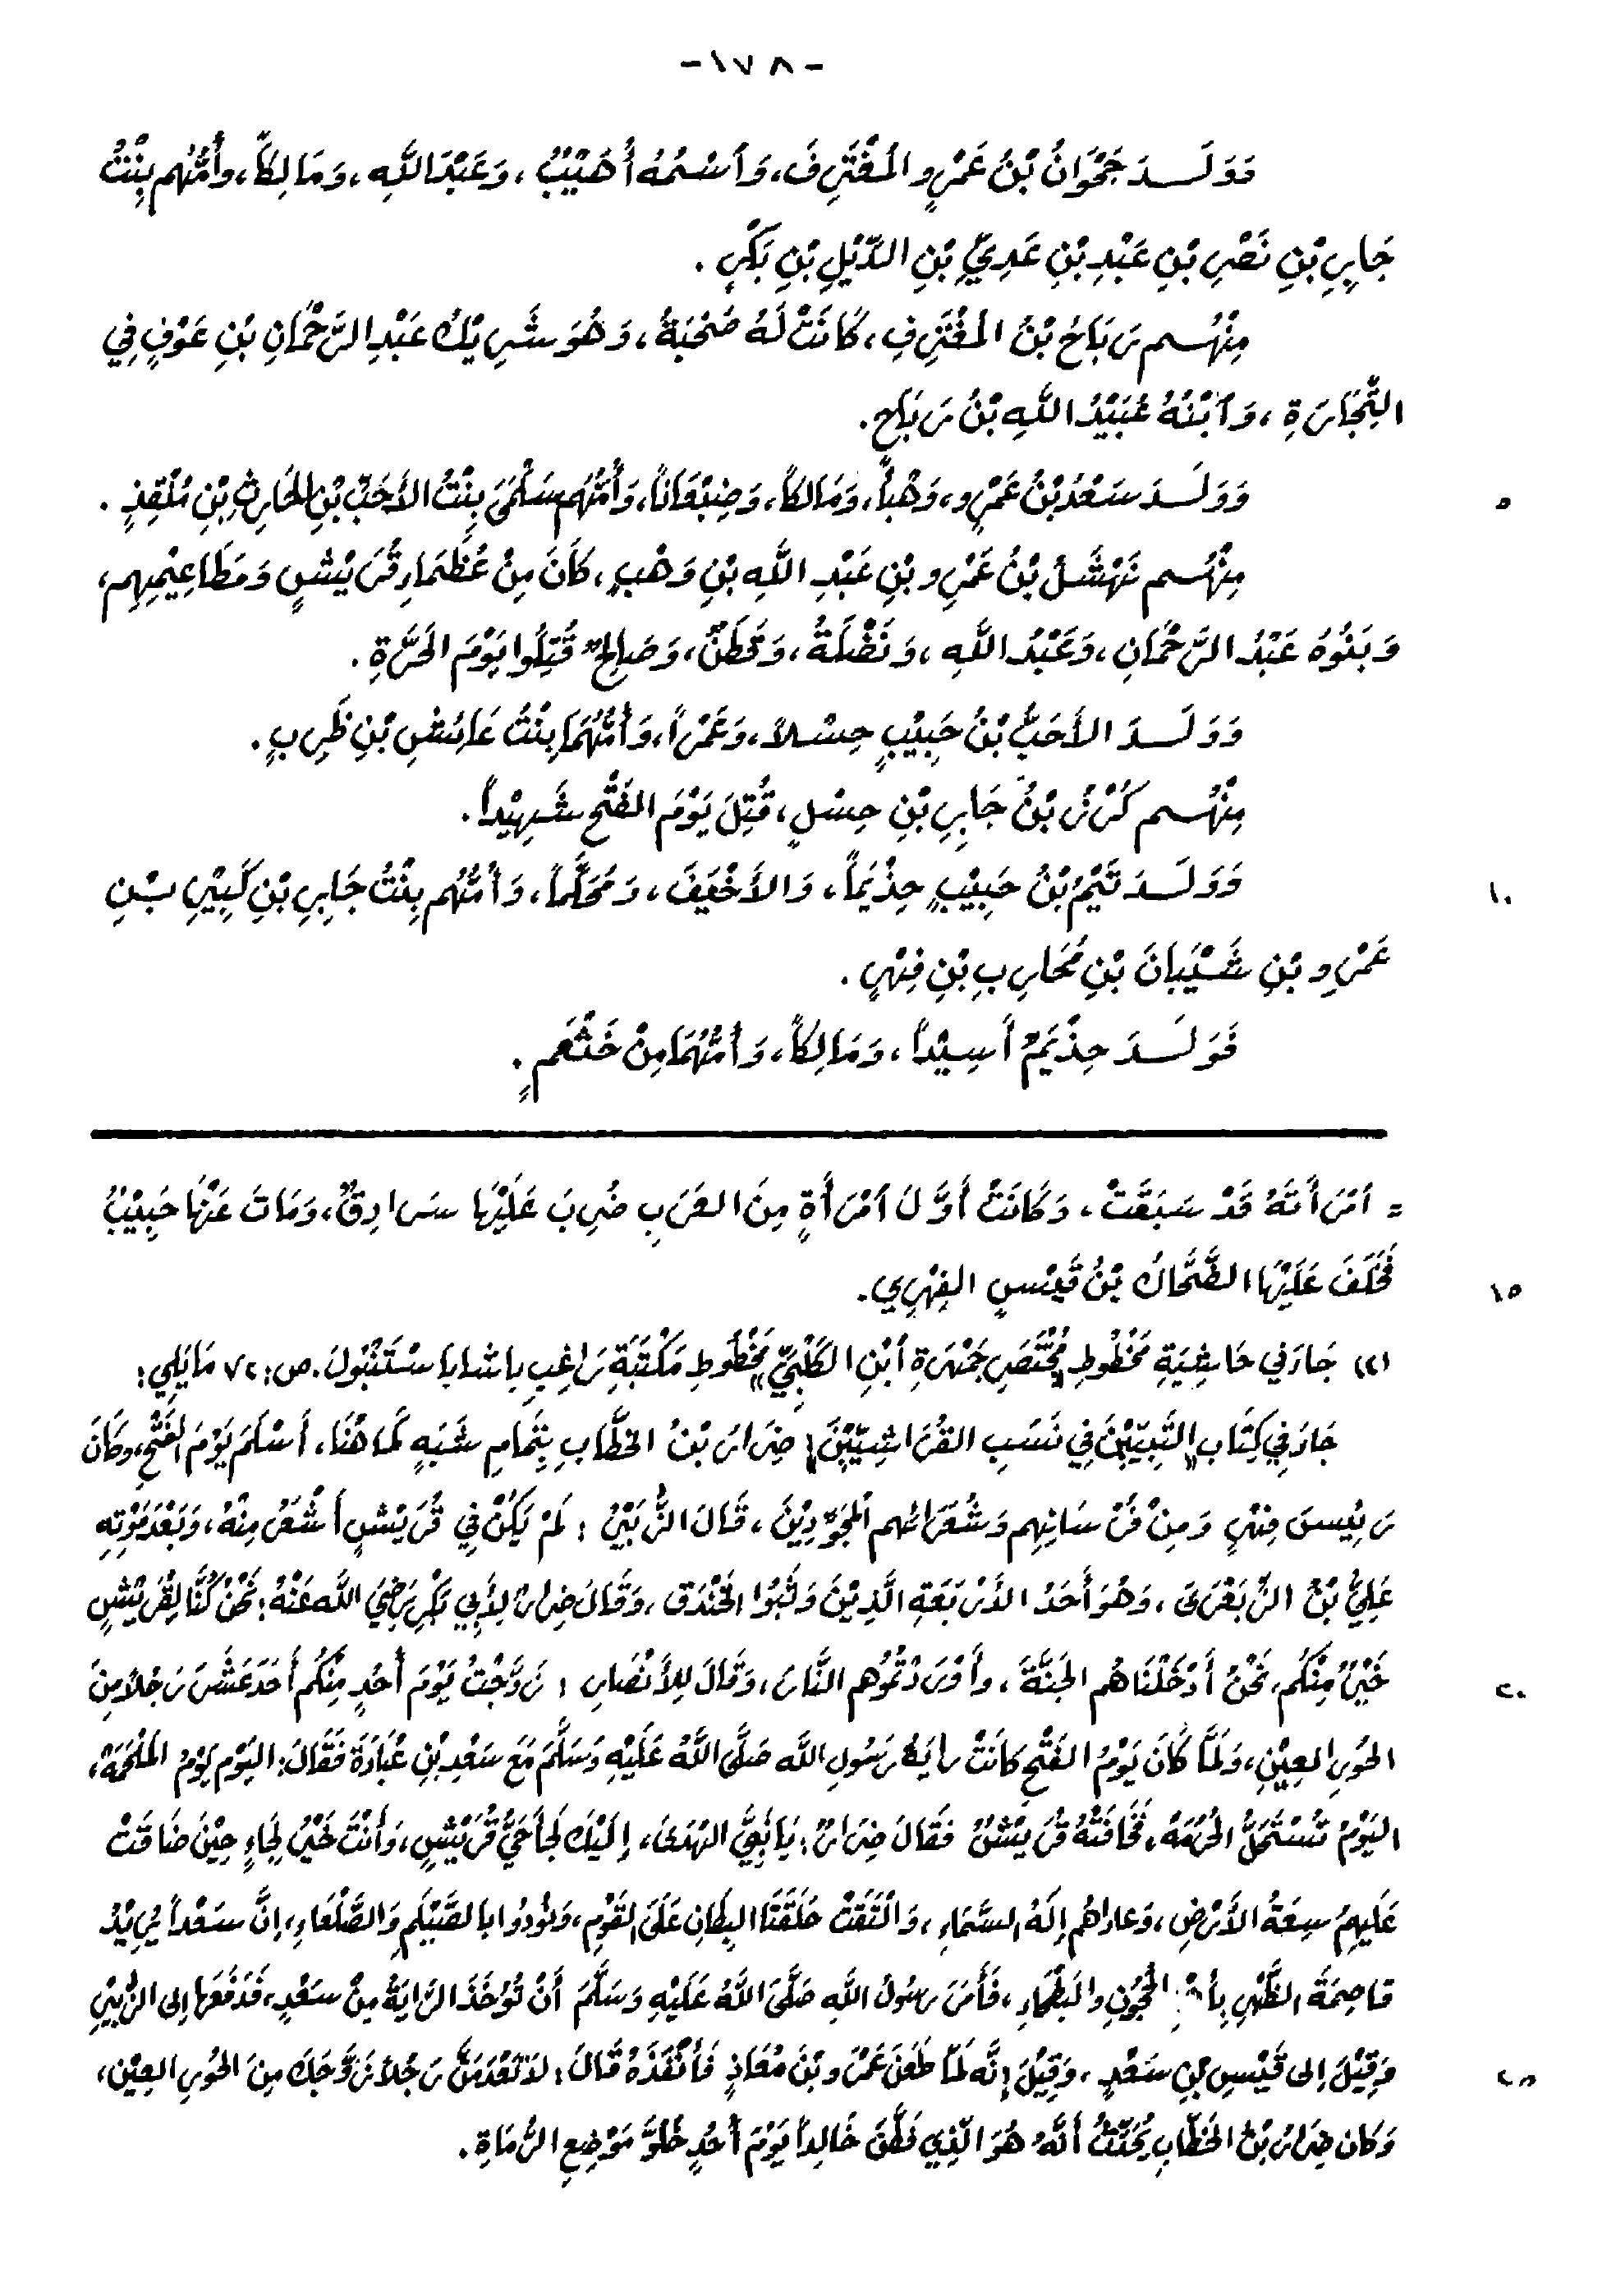 -١٧٨-
وَوَلَدَ جَحْوَانُ بْنُ عَمْرٍو المُغْتَرِفَ، وَاسْمُهُ أُهَيْبٌ، وَعَبْدَ اللَّهِ، وَمَالِكاً، وأُمُّهُم بِنْتُ
جَابِرِ بْنِ نَصْرِ بْنِ عَبْدِ بْنِ عَدِيِّ بْنِ الدِّيْلِ بْنِ بَكْرٍ.
مِنْهُم رَبَاحُ بْنُ المُغْتَرِفِ، كَانَتْ لَهُ صُحْبَةٌ، وَهُوَ شَرِيْكُ عَبْدِ الرَّحْمَانِ بْنِ عَوْفٍ فِي
التِّجَارَةِ، وَابْنُهُ عُبَيْدُ اللَّهِ بْنُ رَبَاحٍ.
وَوَلَدَ سَعْدُ بْنُ عَمْرٍو، وَهْباً، وَمَالِكاً، وَضِبْعَاناً، وَأُمُّهُم سَلْمَى بِنْتُ الأَحَبِّ بْنِ الحَارِثِ بْنِ مُنْقِذٍ. ٥
مِنْهُم نَهْشَلُ بْنُ عَمْرِو بْنِ عَبْدِ اللَّهِ بْنِ وَهْبٍ، كَانَ مِنْ عُظَمَاءِ قُرَيْشٍ وَمَطَاعِيْمِهِم،
وَبَنُوهُ عَبْدُ الرَّحْمَانِ، وَعَبْدُ اللَّهِ، وَنَضْلَةُ، وَقَطَنٌ، وَصَالِحٌ قُتِلُوا يَوْمَ الحَرَّةِ.
وَوَلَدَ الأَحَبُّ بْنُ حَبِيْبٍ حِسْلاً، وَعَمْراً، وَأُمُّهُمَا بِنْتُ عَائِشِ بْنِ ظَرِبٍ.
مِنْهُم كُرْزُ بْنُ جَابِرِ بْنِ حِسْلٍ، قُتِلَ يَوْمَ الفَتْحِ شَهِيْداً.
وَوَلَدَ تَيْمُ بْنُ حَبِيْبٍ حِذْيَماً، وَالأَخْيَفَ، وَمُحَكَّماً، وَأُمُّهُم بِنْتُ جَابِرِ بْنِ كَبِيْرِ بْنِ ١٠
عَمْرِو بْنِ شَيْبَانَ بْنِ مُحَارِبِ بْنِ فِهْرٍ.
فَوَلَدَ حِذْيَمُ أَسِيْداً، وَمَالِكاً، وَأُمُّهُمَا مِنْ خَثْعَمٍ.
= امْرَأَتَهُ قَدْ سَبَقَتْ، وَكَانَتْ أَوَّلَ امْرَأَةٍ مِنَ العَرَبِ ضُرِبَ عَلَيْهَا سَرَادِقٌ، وَمَاتَ عَنْهَا حَبِيْبُ
فَخَلَفَ عَلَيْهَا الضَّحَّاكُ بْنُ قَيْسٍ الفِهْرِي. ١٥
(٢) جَاءَ فِي حَاشِيَةِ مَخْطُوطِ «مُخْتَصَرِ جَمْهَرَةِ ابْنِ الكَلْبِيِّ» مَخْطُوطِ مَكْتَبَةِ رَاغِبِ بِاشا بِاسْتَنْبُولَ. ص: ٧٢ مَا يَلِي:
جَاءَ فِي كِتَابِ «التَّبِيْيْنَ فِي نَسَبِ القُرَاشِيِّيْنَ» ضِرَارُ بْنُ الخَطَّابِ بِتَمَامِ نَسَبِهِ كَمَا هُنَا، أَسْلَمَ يَوْمَ الفَتْحِ، وكَانَ
رَئِيسَ فِهْرٍ وَمِنْ فُرْسَانِهِم وَشُعَرَائِهم المُجَوِّدِيْنَ، قَالَ الزُّبَيْرُ: لَمْ يَكُنْ فِي قُرَيْشٍ أَشْعَرُ مِنْهُ، وَبَعْدَ مَوْتِهِ
عَلِيُّ بْنُ الزِّبَعْرَى، وَهُوَ أَحَدُ الأَرْبَعَةِ الَّذِيْنَ وَثَبُوا الخَنْدَقَ، وَقَالَ ضِرَارٌ لِأَبِي بَكْرٍ رَضِيَ اللَّه عَنْهُ: نَحْنُ كُنَّا لِقُرَيْشٍ
خَيْرٌ مِنْكُم، نَحْنُ أَدْخَلْنَاهُم الجَنَّةَ، وأَوْرَدْتُمُوهُم النَّارَ، وَقَالَ لِلأَنْصَارِ: زَوَّجْتُ يَوْمَ أُحُدٍ مِنْكُم أَحَدَ عَشَرَ رَجُلاً مِنَ ٢٠
الحُورِ العِيْنِ، وَلَمَّا كَانَ يَوْمُ الفَتْحِ كَانَتْ رايَةُ رَسُولِ اللَّه صَلَّى اللَّهُ عَلَيْهِ وَسَلَّمَ مَعَ سَعْدِ بْنِ عُبَادَةَ فَقَالَ: اليَوْمَ يَوْمُ المَلْحَمَهْ،
اليَوْمُ تُسْتَحَلُّ الحُرْمَهْ، فَخَافَتْهُ قُرَيْشٌ فَقَالَ ضِرَارٌ: يَا نَبِيَّ الهُدَى، إِلَيْكَ لَجَا حَيُّ قُرَيْشٍ، وَأَنْتَ خَيْرُ لَجَاءٍ حِيْنَ ضَاقَتْ
عَلَيهِمُ سِعَةُ الأَرْضِ، وَعاداهُم إِلَهُ السَّمَاءِ، وَالْتَقَتْ حَلَقَتَا البِطَانِ عَلَى القَوْمِ، وَنُودُوا بالصَّيْلَمِ وَالصَّلْعَاءِ، إِنَّ سَعْداً يُرِيْدُ
قَاصِمَةَ الظَّهْرِ بِأَهْلِ الحُجُونِ والبَطْحَاءِ، فَأَمَرَ رسُولُ اللَّهِ صَلَّى اللَّهُ عَلَيْهِ وَسَلَّمَ أَنْ تُؤْخَذَ الرَّايَةُ مِنْ سَعْدٍ، فَدَفَعَهَا إِلى الزُّبَيْرِ
وَقِيْلَ إِلى قَيْسِ بْنِ سَعْدٍ، وَقِيْلَ إِنَّه لَمَّا طَعَنَ عَمْرَو بْنَ مُعَاذٍ فَأَنْفَذَهُ قَالَ: لاَ تَعْدَمَنَّ رَجُلاً زَوَّجَكَ مِنَ الحُورِ العِيْنِ، ٢٥
وَكَانَ ضِرَارُ بْنُ الخَطَّابِ يُحَدِّثُ أَنَّهُ هُوَ الَّذِي نَطَّقَ خَالِداً يَوْمَ أُحُدٍ خُلُوَّ مَوْضِعِ الرُّمَاةِ.